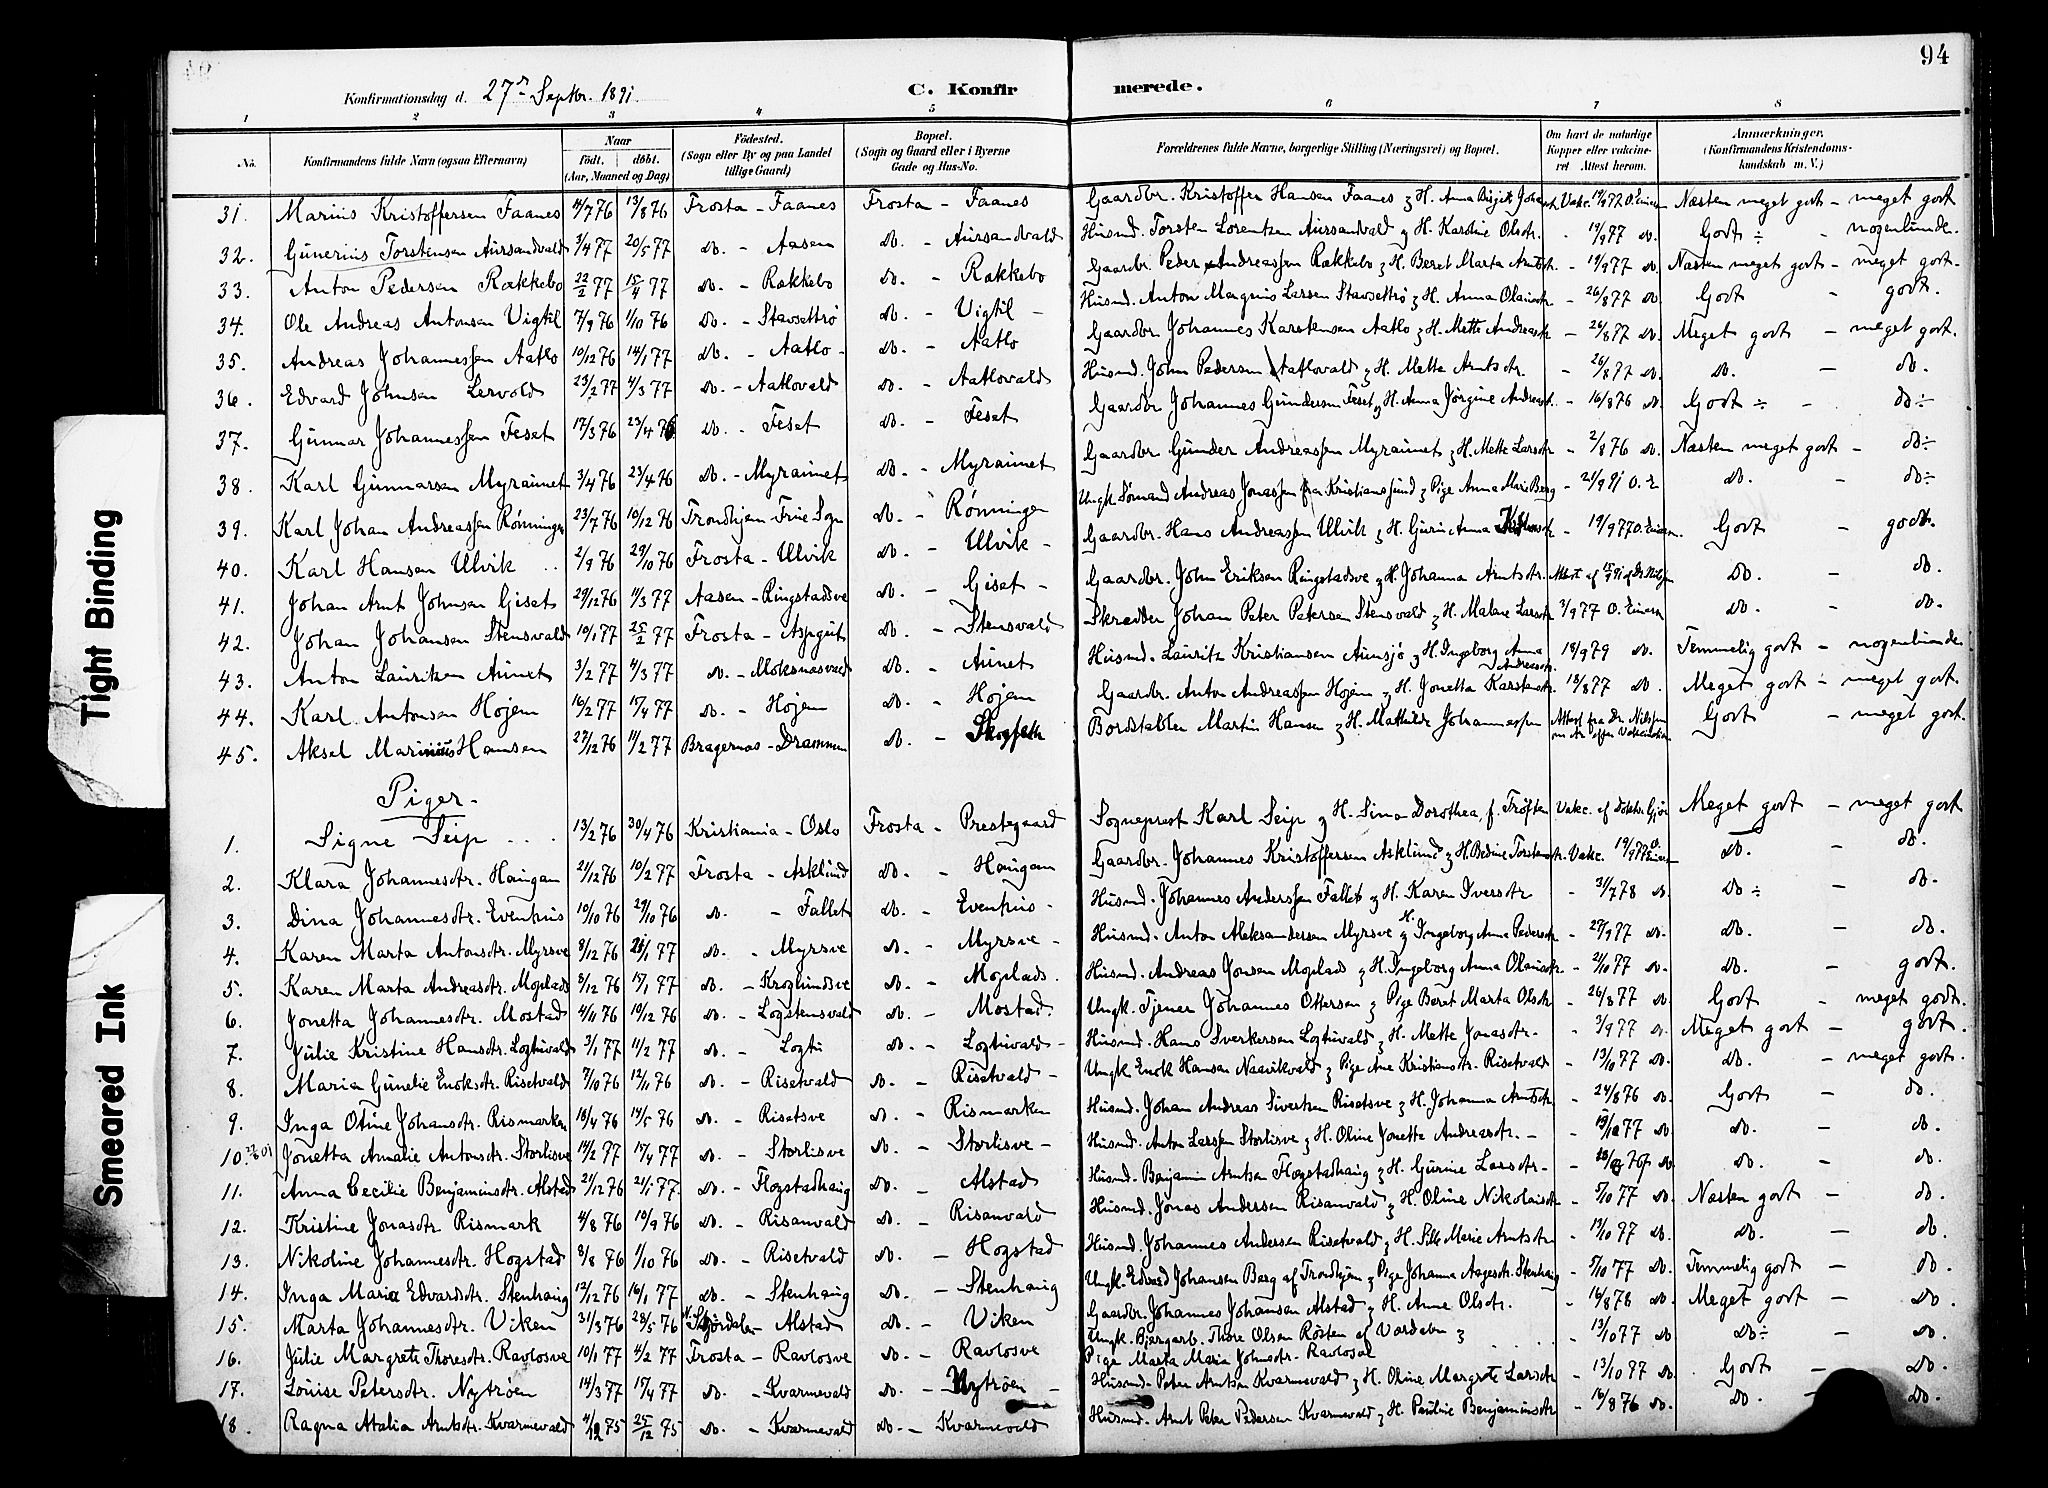 94
Konfirmationsdag d. 27de Septbr. 1891. C. Konfirmerede.
1 2 3 4 5 6 7 8
No. Konfirmandens fulde Navn (ogsaa Efternavn) Naar födt. döbt. (Aar, Maaned og Dag) Födested. (Sogn eller By og paa Landet tillige Gaard) Bopæl. (Sogn og Gaard eller i Byerne Gade og Hus-No. Forældrenes fulde Navne, borgerlige Stilling (Næringsvei) og Bopæl. Om havt de naturlige Kopper eller vaccineret Attest herom. Anmærkninger. (Konfirmandens Kristendomskundskab m. V.)
31. Marius Kristoffersen Faanes 13/8 76 Frosta - Faanes Frosta - Faanes Gaardbr. Kristoffer Hansen Faanes & H. Anna Birgit Vakc. 19/9 77 Næsten meget godt - meget godt
32. Gunerius Torstensen Aursandvald 1/4 77 20/5 77 do. - Aasen do. - Aursandvald Husmd. Torsten Lorentzen Aursandvald & H. Karoline Olsdtr. - 19/9 77 do. Godt ÷ - nogenlunde.
33. Anton Pedersen Rakkebo 22/2 77 15/4 77 do. - Rakkebo do. - Rakkebo Gaardbr. Peder Andreassen Rakkebo & H. Beret Marta Arntsdtr. - 19/9 77 do. Næsten meget godt - meget godt.
34. Ole Andreas Antonsen Vigtil 7/9 76 1/10 76 do. - Stavsettrö do. - Vigtil - Husmd. Anton Magnus Larsen Stavsettrö & H. Anna Olausdtr - 26/8 77 do. Godt - godt.
35. Andreas Johannessen Aatlo 10/12 76 14/1 77 do. - Aatlo - do. - Aatlo Gaardbr. Johannes Karstensen Aatlo & H. Mette Andreasdtr - 26/8 77 do. Meget godt - meget godt.
36. Edvard Johnsen Lervold 23/2 77 4/3 77 do. - Aatlovald do. - Aatlovald Husmd. John Pedersen Aatlovald & H. Mette Arntsdtr. - 26/8 77 do. do. - do.
37. Gunnar Johannessen Feset 17/3 76 23/4 76 do. - Feset do. - Feset Gaardbr Johannes Gundersen Feset & H. Anna Jörgine Andreasd. - 16/8 76 do. Godt ÷ - do ÷
38. Karl Gunnarsen Myraunet 3/4 76 23/4 76 do. - Myraunet do. - Myraunet Gaardbr Gunder Andreassen Myraunet & H. Mette Larsdtr - 2/8 76 do. Næsten meget godt - do ÷
39. Karl Johan Andreassen Rönningen 23/7 76 10/12 76 Trondhjem Frue Sogn do. - Rönningen Ungk. Sömand Andreas Jonassen fra Kristianssund & Pige Anna Marie Berg - 21/9 91 O. E do. - do ÷
40. Karl Hansen Ulvik 2/9 76 29/10 76 Frosta - Ulvik do. - Ulvik - Gaardbr. Hans Andreassen Ulvik & H. Guri Anna - 19/9 77 O. Einersen Godt - godt.
41. Johan Arnt Johnsen Giset 29/12 76 11/3 77 Aasen - Ringstadsve do. - Giset - Gaardbr. John Eriksen Ringstadsve & H. Johanna Arntsdtr. do. - do.
42. Johan Johansen Stensvald 10/1 77 25/2 77 Frosta - do. - Stensvald Skrædder Johan Peter Petersen Stensvald & H. Malene Larsdtr 3/9 77 O. Einersen do. - do.
43. Anton Lauritzen Aunet 3/2 77 4/3 77 do. - Moksnesvald do. - Aunet Husmd. Lauritz Kristiansen Aunsjö & H. Ingeborg Anna Andreasdtr. 18/9 79 do. Temmelig godt - nogenlunde
44. Karl Antonsen Hojem 16/2 77 17/4 77 do. - Höjem do. - Hojem Gaardbr. Anton Andreassen Hojem & H. Jonetta Karstensdtr. 18/8 77 do. Meget godt - meget godt.
45. Aksel Marinius Hansen 27/12 76 11/2 77 Bragernæs - Drammen do. - Bordstabler Martin Hansen & H. Mathilde Johannessen Attest fra Dr. Nilssen Godt - meget godt.
Piger.
1. Signe Seip 13/2 76 30/4 76 Kristiania - Oslo Frosta - Prestegaard Sogneprest Karl Seip & H. Sina Dorothea, f. Vakc. af Doktor Meget godt - meget godt
2. Klara Johannesdtr. Haugan 21/12 76 10/2 77 Frosta - Asklund do. - Haugan Gaardbr. Johannes Kristoffersen Asklund & H. Bedine Torstensdtr. Vakc. 19/9 77 do. - do.
3. Dina Johannesdtr. Evenhus 10/10 76 29/10 76 do. - Fallet do. - Evenhus - Husmd. Johannes Anderssen Fallet & H. Karen Iversdtr - 31/7 78 do. do ÷ do.
4. Karen Marta Antonsdtr. Myrsve 8/12 76 77 do. - Myrsve do. - Myrsve - Husmd. Anton Aleksandersen Myrsve & H. Ingeborg Anna Pedersdtr - 27/9 77 do. do. - do.
5. Karen Marta Andreasdtr. Moplads 8/12 76 77 do. - Kroglundsve do. - Moplads. Husmd. Andreas Jonsen Moplads & H. Ingeborg Anna Olausdtr. - 21/10 77 do. do. - godt.
6. Jonetta Johannesdtr. Mostad 4/11 76 10/12 76 do. - Logstensvald do. - Mostad. Ungk. Tjener Johannes Ottersen & Pige Beret Marta Olsdtr - 26/8 77 do. Godt - meget godt.
7. Julie Kristine Hansdtr. Logtuvald 3/1 77 11/2 77 do. - Logtu do. - Logtuvald - Husmd. Hans Sverkersen Logtuvald & H. Mette Jonasdtr. - 3/9 77 do. Meget godt - godt.
8. Maria Gunelie Enoksdtr. Risetvald 7/10 76 12/11 76 do. - Risetvald do. - Risetvald - Ungk Enok Hansen Naavikvald & Pige Ane Kristiansdtr. Risetvald - 13/10 77 do. do. - meget godt.
9. Inga Otine Johansdtr. Rismarken 18/4 76 14/5 76 do. - Risetsve do. - Rismarken Husmd. Johan Andreas Sivertsen Risetsve & H. Johanna Arntsdtr - 24/8 76 do. Godt - do.
10. Jonetta Amalie Antonsdtr. Storlisve 14/2 77 17/4 77 do. - Storlisve do. - Storlisve - Husmd. Anton Larssen Storlisve & H. Oline Jonette Andreasdtr. - - 77 do do. - do.
11. Anna Cecilie Benjaminsdtr. Alstad 21/12 76 21/1 77. do. - Flogstadhaug do. - Alstad Husmd. Benjamin Arntsen Flogstadhaug & H. Gurine Larsdtr - - do. do. - do.
12. Kristine Jonasdtr Rismark 4/8 76 10/9 76 do. - Risanvald do. - Risanvald Husmd. Jonas Andersen Risanvald & H. Oline Nikolaisdtr - 5/10 77 do. Næsten godt - do.
13. Nikoline Johannesdtr. Hogstad 8/8 76 1/10 76 do. - Risetvald do. - Hogstad Husmd. Johannes Andersen Risetvald & H. Marie Arntsdtr - 13/10 77 do. do. - do.
14. Inga Maria Edvardsdtr. Stenhaug 12/12 76 16/1 77 do. - Stenhaug do. - Stenhaug Ungk. Edvard Johansen Berg af Trondhjem & Pige Johanna Aagesdtr. Stenhaug - 5/10 77 do. Temmelig godt - do.
15. Marta Johannesdtr. Viken 31/3 76 28/5 76 Stjördalen - Alstad do. - Viken Gaardbr. Johannes Johansen Alstad & H. Anne Olsdtr. - 16/8 78 do. Meget godt - do.
16. Julie Margrete Thoresdtr. Ravlosve 10/1 77 4/2 77 Frosta - Ravlosve do. - Ravlosve Ungk. Bjergarb. Thore Olsen Rösten af Værdalen & Pige Marta Maria Johnsdtr. - 13/10 77 do do ÷ - do.
17. Louise Petersdtr. Nytröen 14/3 77 15/4 77 do. - Kvarmevald do. - Nytröen - Husmd. Peter Arntsen Kvarmevald & H. Oline Margrete Larsdtr - 13/10 77 do. Godt - do.
18. Ragna Atalia Arntsdtr. Kvarmevald 4/12 75 25/12 75 do. - Kvarmevald do. - Kvarmevald Husmd. Arnt Peter Pedersen Kvarmevald & H. Pauline Benjaminsdtr - 16/8 76 do. do. - do.
Tight Binding
Smeared Ink